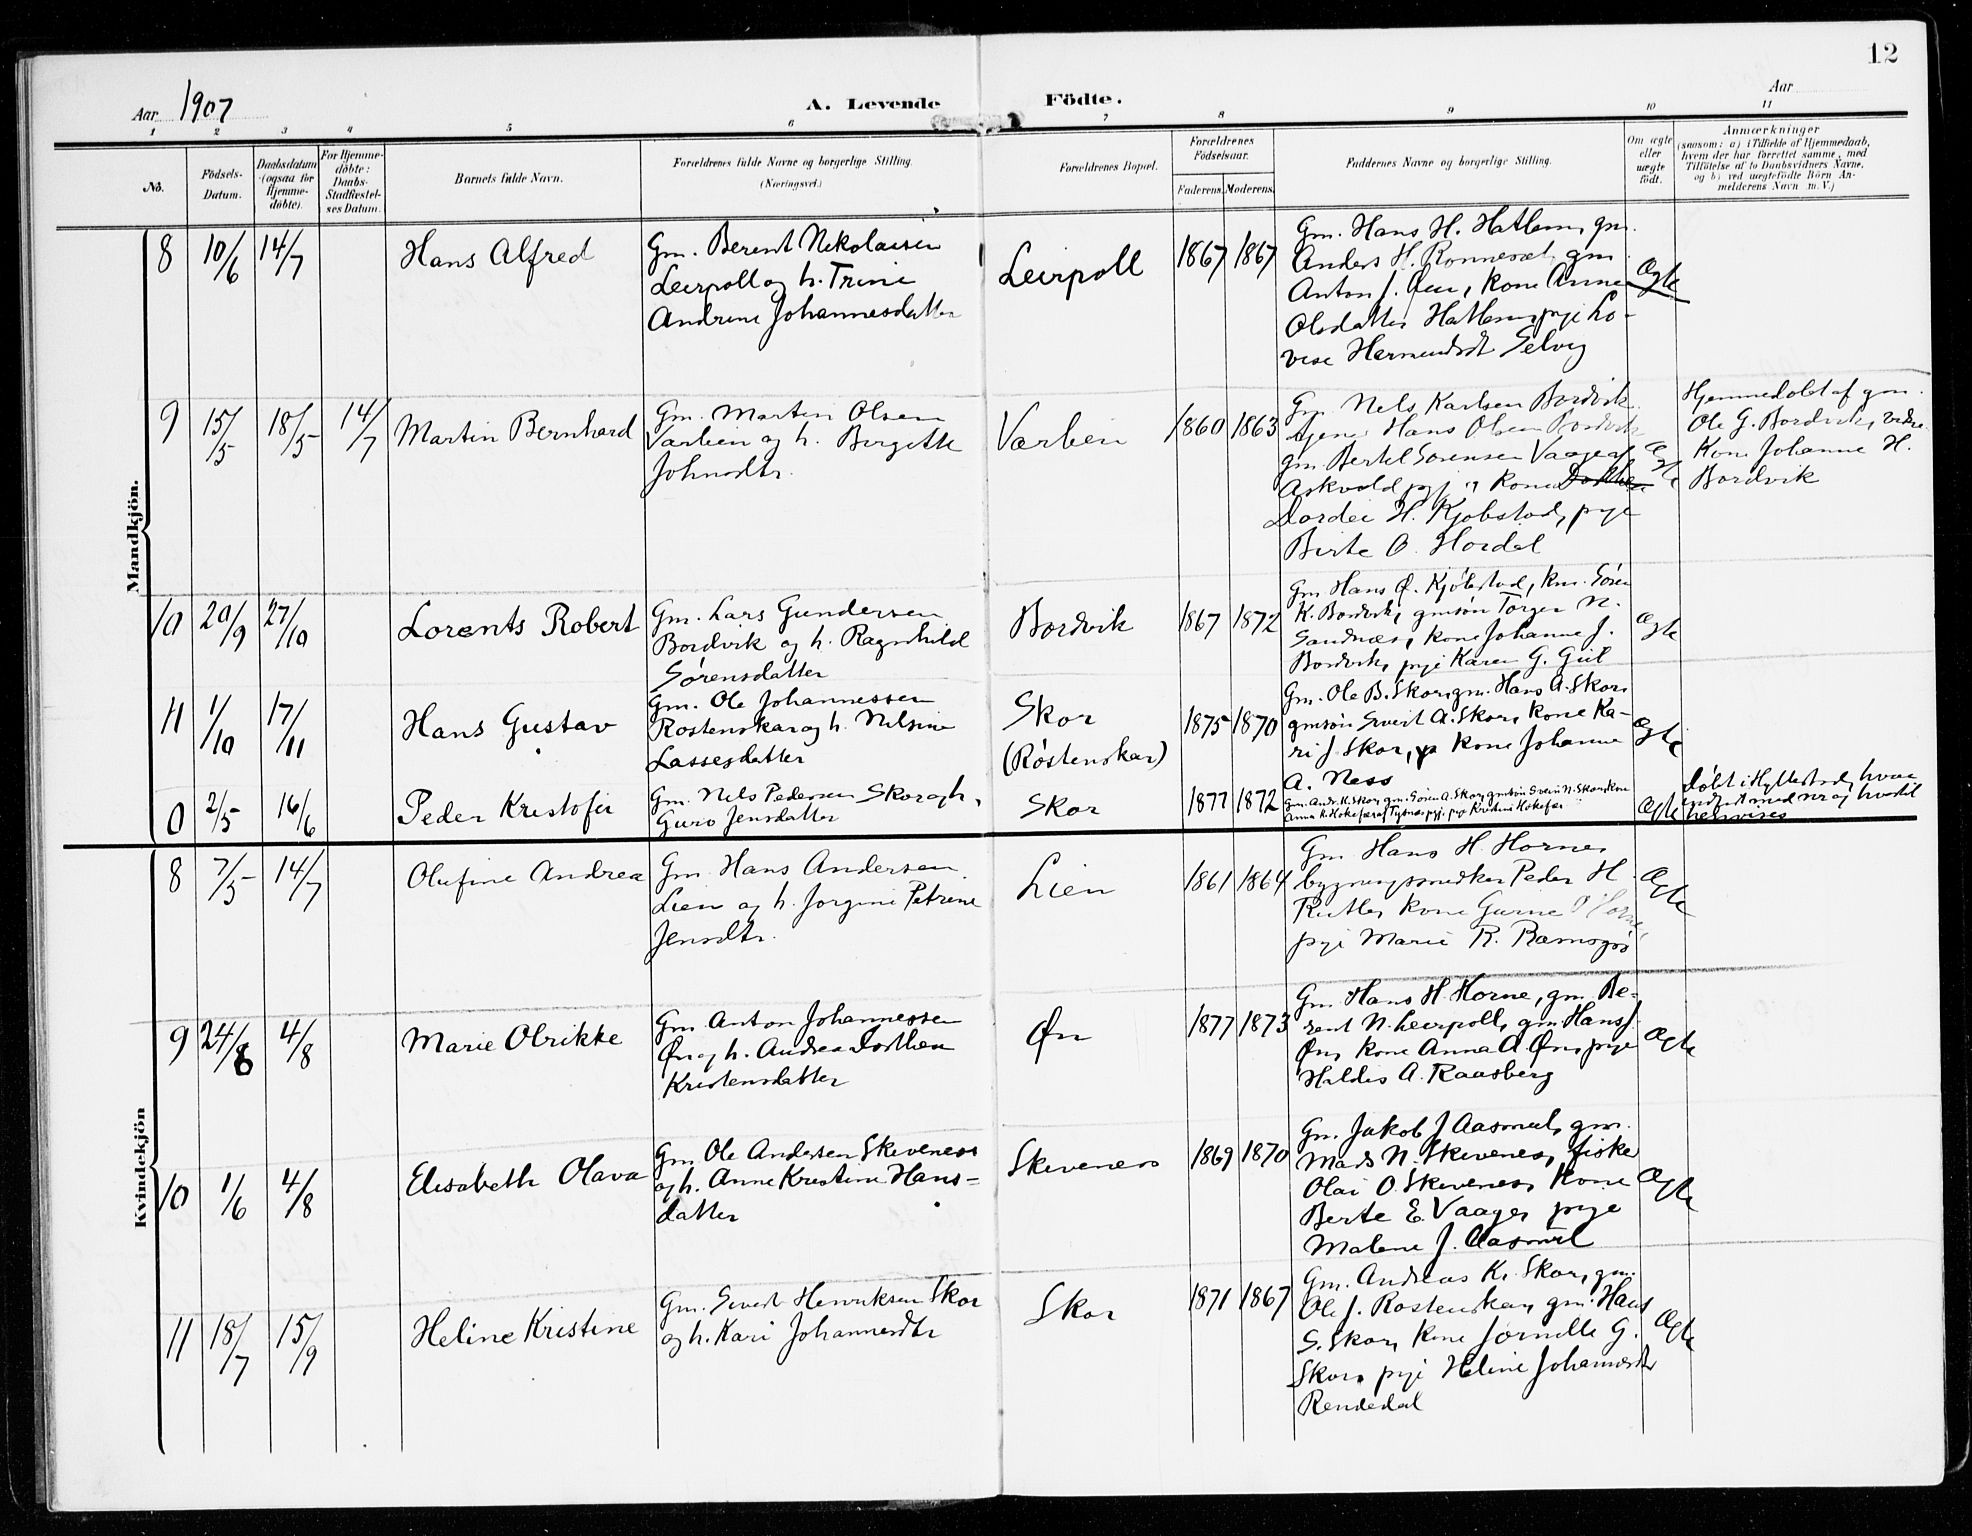 12
Aar 1907
A. Levende Födte.
Aar
1 2 3 4 5 6 7 8 9 10 11
No.
Födsels-
Datum.
Daabsdatum
(ogsaa for
Hjemme-
döbte).
For Hjemme-
döbte:
Daabs-
Stadfæstel-
ses Datum.
Barnets fulde Navn.
Forældrenes fulde Navne og borgerlige Stilling.
(Næringsvei.)
Forældrenes Bopæl.
Forældrenes
Födselsaar.
Faderens. Moderens.
Faddernes Navne og borgerlige Stilling.
Om ægte
eller
uægte
födt.
Anmærkninger
(saasom: a) i Tilfælde af Hjemmedaab,
hvem der har forrettet samme, med
Tilföielse af to Daabsvidners Navne,
og b) ved uægtefödte Börn An-
melderens Navn m. V.)
Mandkjön.
8 10/6 14/7
Hans Alfred
Gm. Berent Nikolaisen
Leirpoll og h. Trine
Andrine Johannesdatter
Leirpoll
1867 1867
Gm. Hans H. Hatlem, gm.
Anders H. Ronneset, gm
Anton J. Øen, kone Anne
Olsdatter Hatlem, pige Lo-
vise Hermundsdt Selvig
Ægte
9 15/5 18/5 14/7
Martin Bernhard
Gm. Martin Olsen
Værbein og h. Birgitte
Johnsdtr.
Værben
1860 1863
Gm. Nils Karlsen Bordvik
tjener Hans Olsen Bordvik
gm Bertel Sorensen Vaage af
Askvold pgj, kone
Dordei H. Kjobstad, pige
Birte O. Hordal
Ægte
Hjemmedobt af gm.
Ole G. Bordvik, vidne
Kone Johanne H.
Bordvik
10 20/9 27/10
Lorents Robert
Gm. Lars Gundersen
Bordvik og h. Ragnhild
Sørensdatter
Bordvik
1867 1872
Gm Hans Ø. Kjøbstad, km. Sören
K. Bordvik, gmsøn Torger N.
Sandnæs, kone Johanne J.
Bordvik, pige Karen G. Giil
Ægte
11 1/10 17/11
Hans Gustav
Gm. Ole Johannessen
Rostenskar og h. Nilsine
Lassesdatter
Skor
(Röstenskar)
1875 1870
Gm. Ole B. Skor, gm. Hans A. Skor,
gmsøn Sivert A. Skor, kone Ka-
ri J. Skor, kone Johanne
A. Ness
Ægte
0 2/5 16/6
Peder Kristofer
Gm. Nils Pedersen Skor og h.
Guro Jensdatter
Skor
1877 1872
Gm. Andr. K. Skor, gm. Søren A. Skor, gmsön Sverin N. Skor, kone
Ægte
Döbt i Hyllestad, hvor
indført med nr og hvortil
henvises
Kvindekjön
8 7/5 14/7
Olufine Andrea
Gm Hans Andersen
Lien og h. Jorgine Petrine
Jensdtr.
Lien
1861 1864
Gm. Hans H. Horne,
bygningssnedker Peder H
Rutle, kone Gurine O Horne,
pige Marie R. Ramsgrö
Ægte
9 24/6 4/8
Marie Olrikke
Gm Anton Johannessen
Øn og h. Andrea Dorthea
Kristensdatter
Øn
1877 1873
Gm Hans H. Horne, gm. Be-
rent N. Leirpoll, gm Hans J.
Øn, kone Anna A. Øn, pige
Haldis A. Raasberg
Ægte
10 1/6 4/8
Elisabeth Olava
Gm Ole Andersen Skivenes
og h. Anne Kristine Hans-
datter
Skivenes
1869 1870
Gm. Jakob J Aasmul, gm.
Mads N. Skivenes, fisker
Olai O. Skivenes, kone
Berte E. Vaage, pige
Malene J. Aasmul
Ægte
11 18/7 15/9
Heline Kristine
Gm. Sivert Henriksen Skor
og h. Kari Johannesdtr
Skor
1871 1867
Gm. Andreas K. Skor, gm.
Ole J. Rostenskar, gm. Hans
S. Skor, kone Jørnille G.
Skor, pige Heline Johannesdtr
Rendedal
Ægte